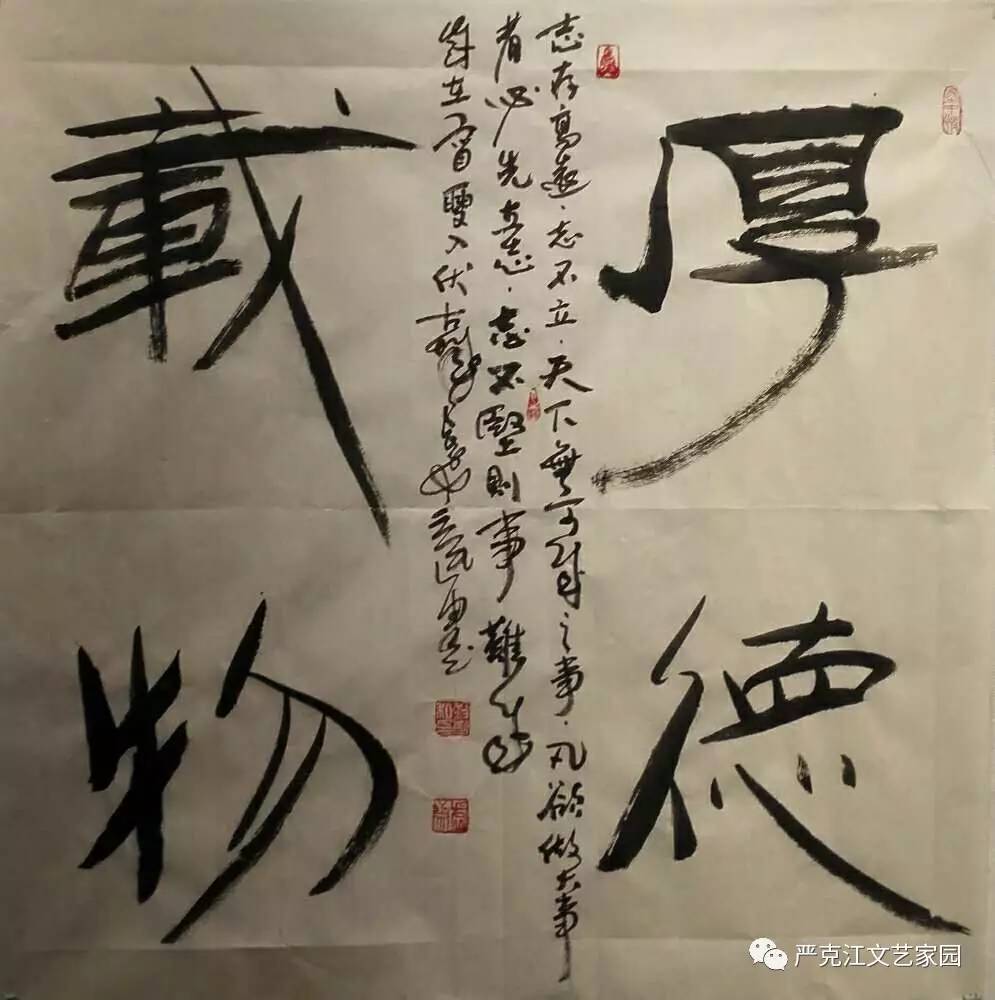 厚德
載物
志存高遠、志不立、天下無可成之事、凡欲做大事
者必先立志、志不堅則事難成
在酉夏入伏古
严克江文艺家园